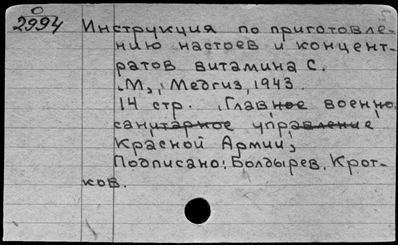 2994 Инструкция по приготовле-
нию настоев и концент-
ратов витамина С.
М., Медгиз, 1943.
14 стр. Главное военно
санитарное управление
Красной Армии;
Подписано: Болдырев, Крот-
ков.